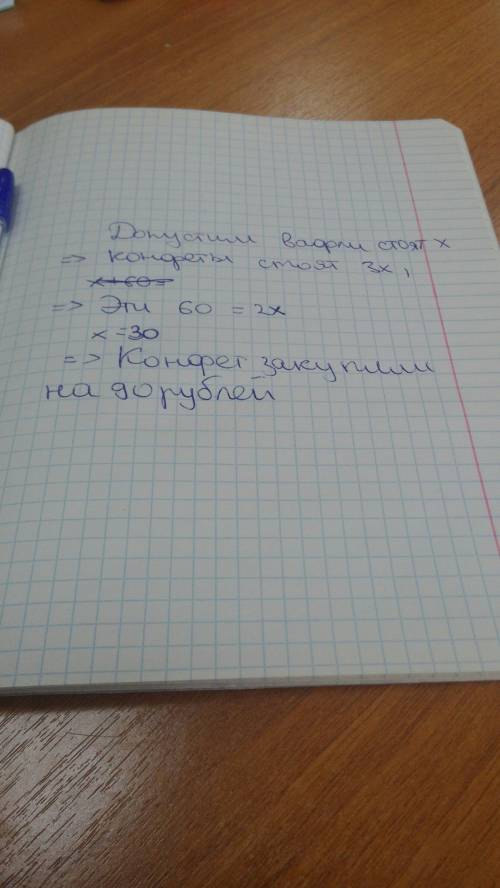 Допустим вафли стоят x
=> конфеты стоят 3x,
x+60=
=> Эти 60 = 2x
x=30
=> Конфет закупили
на 90 рублей